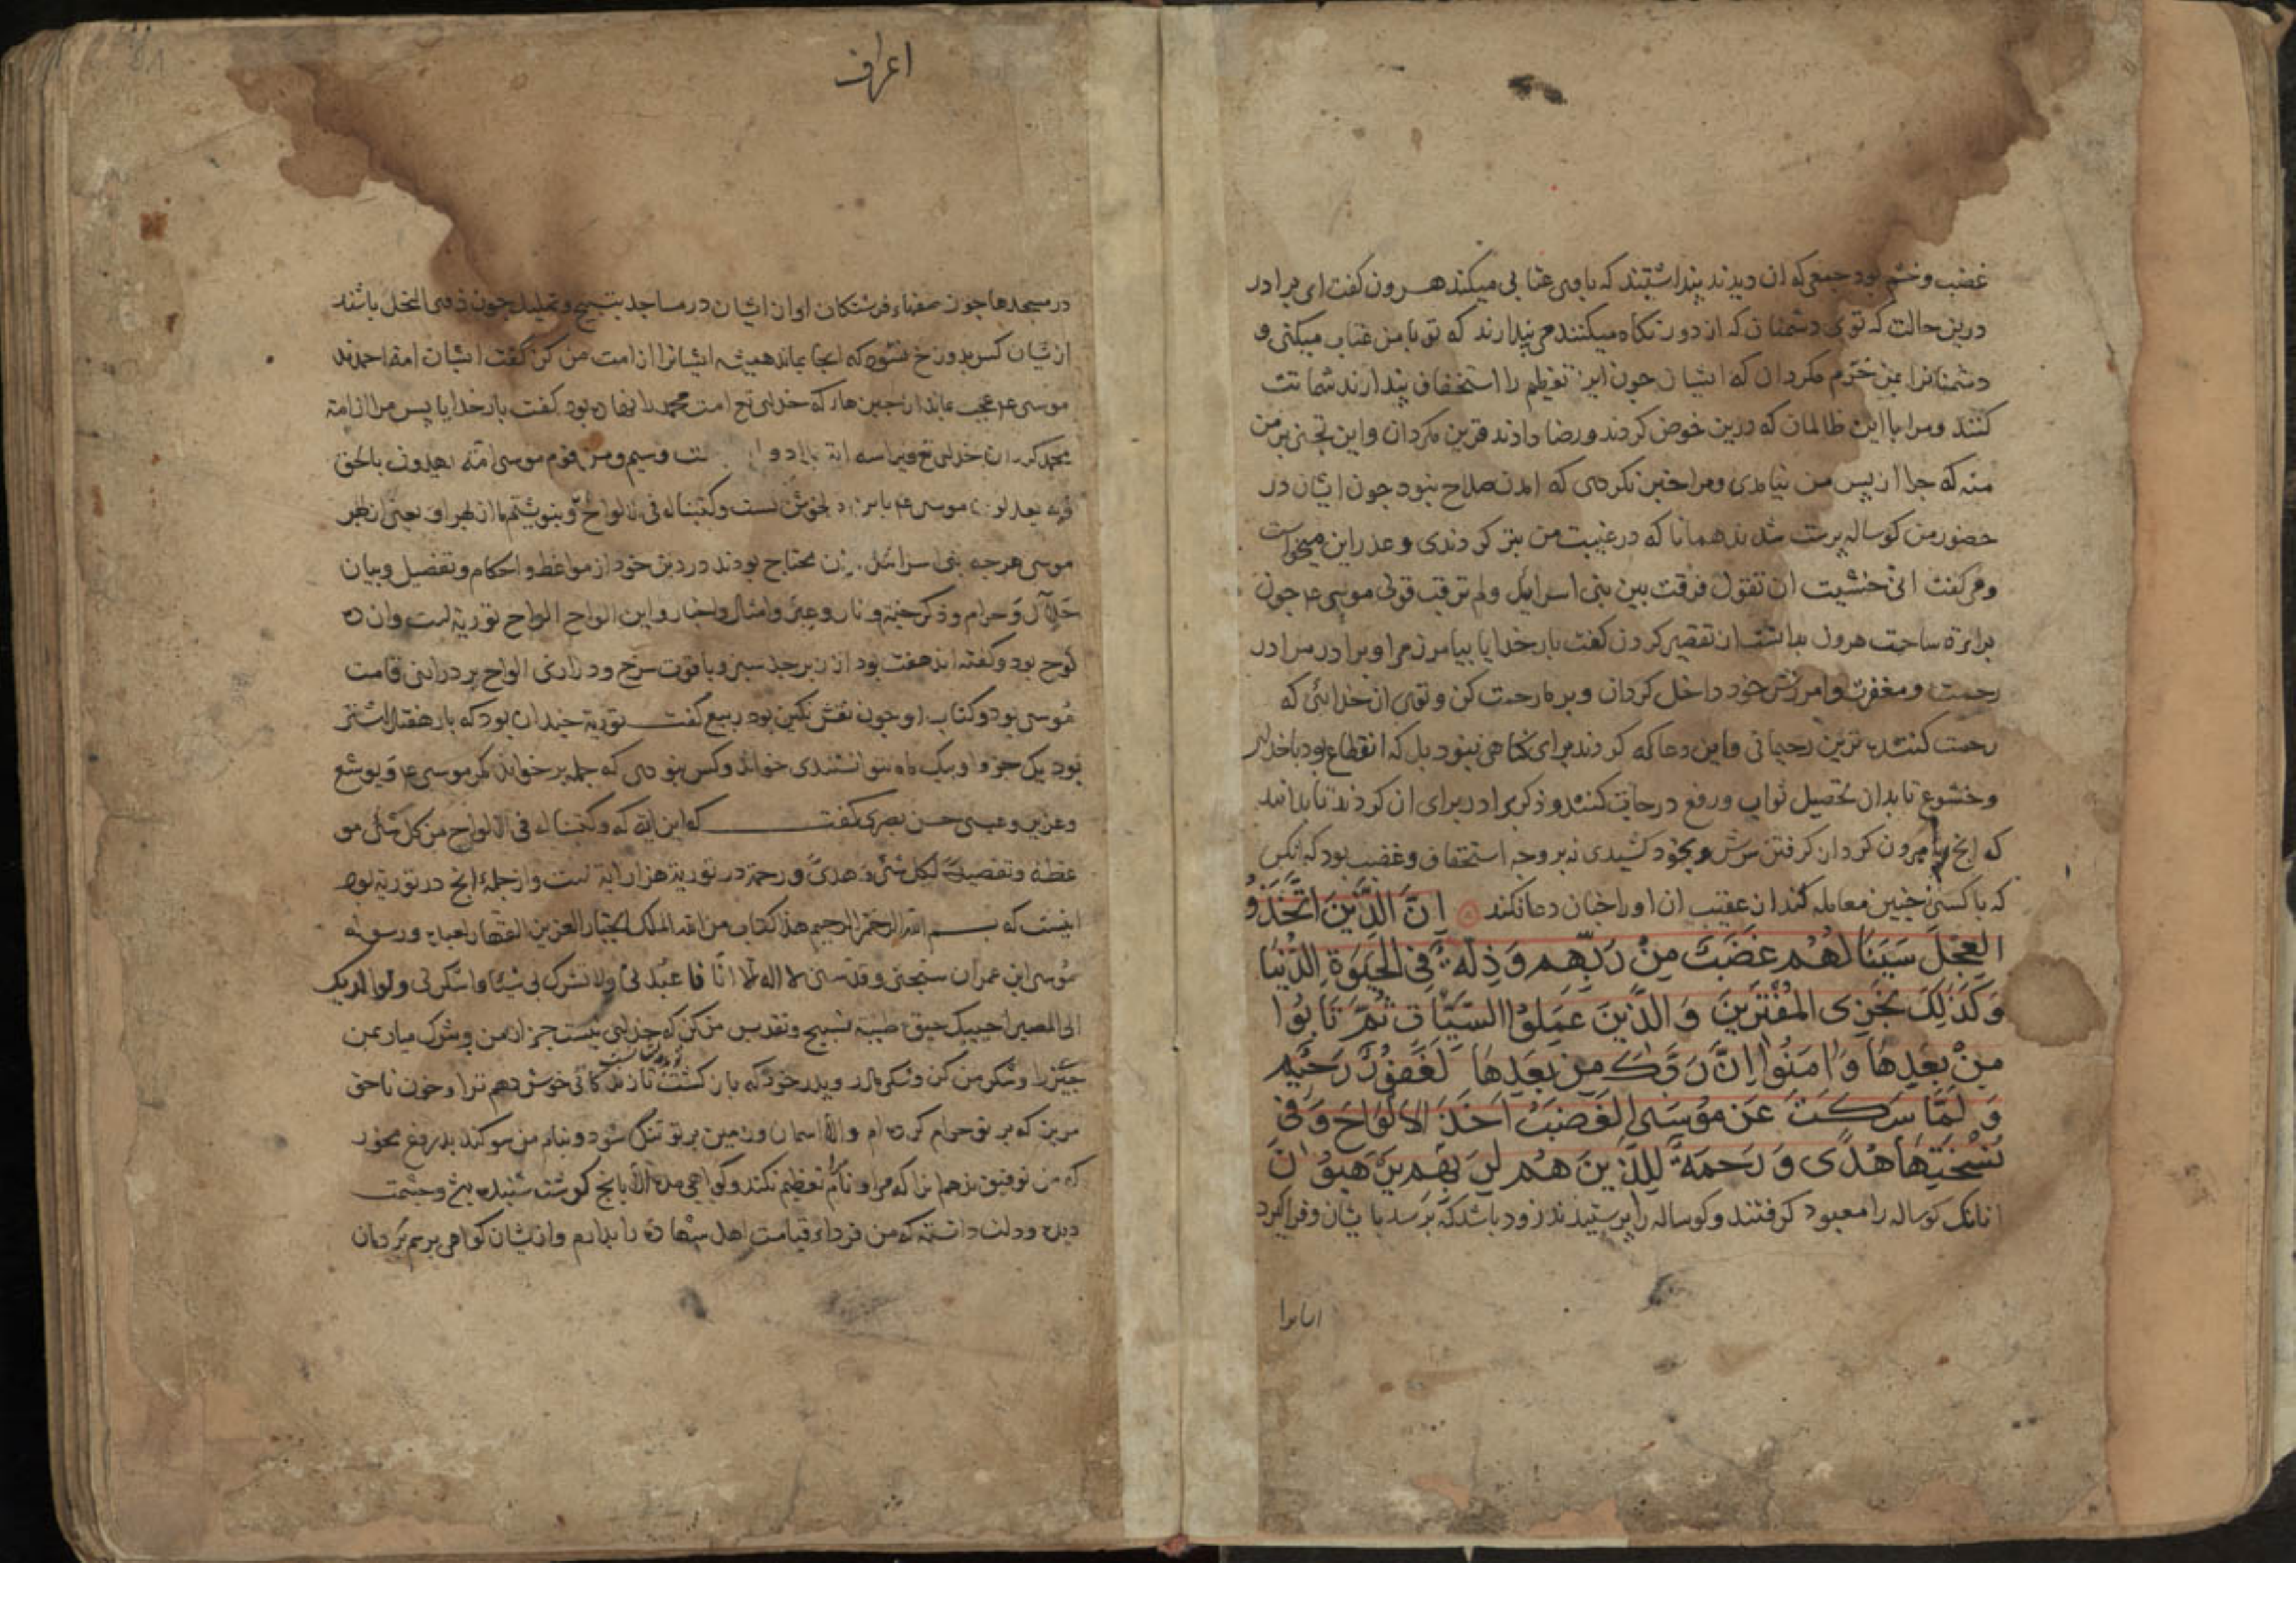 غضب وخشم بود جمعی که ان دیدند پنداشتند که با وی عتابی میکند هرون کفت ای برادر
درین حالت که توی دشمنان که از دور نکاه میکنند می پندارند که تو با من عتاب میکنی و
دشمنانرا بمن خرّم مکردان که ایشان جون این تعظیم را استخفاف پندارند شماتت
کنند ومرا با این ظالمان که درین خوض کردند ورضا دادند قرین مکردان واین تجنی بر من
منه که جرا از پس من نیامدی ومرا خبر نکردی که امدن صلاح نبود جون ایشان در
حضور من کوساله پرست شدند همانا که در غیبت من بتر کردندی وعذر این میخواست
ومی کفت انی خشیت ان تقول فرقت بین بنی اسرایل ولم ترقب قولی موسی ع جون
براءة ساحت هرون بدانست از تقصیر کردن کفت بار خدایا بیامرز مرا وبرادر مرا در
رحمت ومغفرت وامرزش خود داخل کردان وبر ما رحمت کن وتوی ان خدائی که
رحمت کننده ترین رحیمانی واین دعا که کردند برای کناهی نبود بل که انقطاع بود با خدای
وخشوع تا بدان تحصیل ثواب ورفع درجات کنند وذکر برادر برای ان کردند تا بدانند
که انج با هرون کرد از کرفتن سرش وبخود کشیدی نه بر وجه استخفاف وغضب بود که انکس
که با کسی جنین معامله کند از عقیب ان او را جنان دعا نکند اِنَّ الَّذِینَ اتَّخَذُو
العِجْلَ سَیَنَالُهُمْ غَضَبٌ مِنْ رَبِّهِم وَذِلَّةٌ فِی الحَیَوةِ الدُّنْیَا
وَکَذَلِکَ نَجْزِی المُفْتَرِینَ وَالَّذِینَ عَمِلُوا السَّیِّاتِ ثُمَّ تَابُوا
مِنْ بَعْدِهَا وَامَنُوا اِنَّ رَبَّکَ مِنْ بَعْدِهَا لَغَفُوْرٌ رَحِیْم
وَلَمَّا سَکَتَ عَنْ مُوْسَی الغَضَبُ اَخَذَ الاَلْوَاحَ وَفِی
نُسْخَتِهَا هُدًی وَرَحْمَةٌ لِلَّذِینَ هُمْ لِرَبِّهِمْ یَرْهَبُوْنَ
انانک کوساله را معبود کرفتند وکوساله را پرستیدند زود باشد که برسد بایشان وفرا کیرد
ایشانرا
اعراف
در مسجدها جون صفهاء فرشتکان اواز ایشان در مساجد بتسبیح وتهلیل جون دوی النحل باشد
از ایشان کس بدوزخ نشود که انجا بماند همیشه ایشانرا از امت من کن کفت ایشان امة احمدند
موسی ع عجب بماند از جیزها که خدای تع امت محمد را نهاده بود کفت بار خدایا پس مرا از امة
محمد کردان خدای تع ومن قوم موسی امة یهدون بالحق
وبه یعدلون موسی ع دلخوش کشت وکتبنا له فی الالواح وبنوشتیم ما از بهر او یعنی از بهر
موسی هرجه بنی اسرایل بدن محتاج بودند در دین خود از مواعظ واحکام وتفصیل وبیان
حلال وحرام وذکر جنة ونار وعبر وامثال واخبار واین الواح الواح توریة است وان ده
لوح بود وکفته اند هفت بود از زبرجد سبز ویاقوت سرخ ودرازی الواح بر درازنی قامت
موسی بود وکتاب او جون نقش نکین بود ربیع کفت توریة جندان بود که بار هفتاد اشتر
بود یک جزو او بیک ماه نتوانستندی خواند وکس نبودی که جمله بر خواند مکر موسی ع ویوشع
وعزیر وعیسی حسن بصری کفت که این ایة که وکتبنا له فی الالواح من کل شئ مو
عظة وتفصیلا لکل شئ وهدی ورحمة در توریة هزار ایة است واز جملهٔ انج در توریة بود
اینست که بسم الله الرحمن الرحیم هذا کتاب من الله الملک الجبار العزیز القهار لعبده ورسوله
موسی ابن عمران سبحنی وقدسنی لا اله الا انا فاعبدنی ولا تشرک بی شیئا واشکر لی ولوالدیک
الی المصیر احییک حیوة طیبة تسبیح وتقدیس من کن که خدای نیست جز از من وشرک میار بمن
جیزرا وشکر من کن وشکر مادر وپدر خود که بازکشت تا زندکانی خوش دهم ترا وخون ناحق
مریز که بر تو حرام کرده ام والا اسمان وزمین بر تو تنک شود وبنام من سوکند بدروغ مخور
که من توفیق ندهم انرا که مرا ونام تعظیم نکند وکواهی مده الا بانج کوشت شنیده وجشمت
دیده ودلت دانسته که من فرداء قیامت اهل شهادة را بدارم واز ایشان کواهی برسم بر دمان